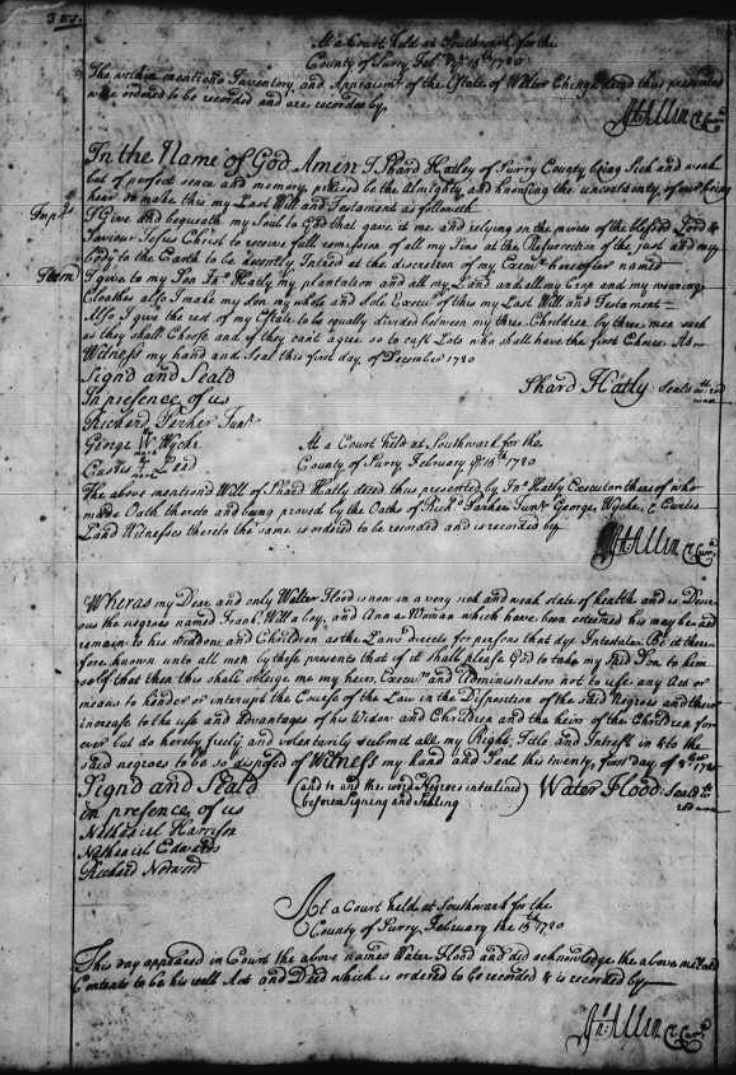 At a Court held at Southwark for the
County of Surry Feb. ye 15th 1720
The within mentiond Inventory and Appraismt of the Estate of Walter decd thus presented
were ordered to be recorded and are recorded by
Jn: Allen Cl Cur
In the Name of God Amen I Shard Hatley of Surry County being Sick and weak
but of perfect sence and memory praised be the Almighty and knowing the uncertainty of our being
hear do make this my Last Will and Testament as followeth
Imprs I Give and bequeath my Soul to God that gave it me and relying on the merits of the blessed Lord &
Saviour Jesus Christ to receive full remission of all my Sins at the Resurrection of the just and my
body to the Earth to be decently Interd at the discretion of my Execur hereafter named
Item I give to my Son Jno Hatly my plantation and all my Land and all my Crop and my wearing
Cloathes also I make my son my whole and sole Execur of this my Last Will and Testament
Also I give the rest of my Estate to be equally divided between my three Children by three men such
as they shall Choose and if they cant agree so to cast Lots who shall have the first Choice As
Witness my hand and Seal this first day of December 1720
Signd and Seald
Shard Hatly: Seald
In presence of us
Richard Parker Junr
George W Wyche
mark
At a Court held at Southwark for the
Curtis Land
mark
County of Surry February ye 15th 1720
The above mentiond Will of Shard Hatly decd thus presented by Jno Hatly Executor thereof who
made Oath thereto and being proved by the Oaths of Richd Parker Junr George Wyche & Curtis
Land Witnesses thereto the same is ordered to be recorded and is recorded by
Jn: Allen Cl Cur
Wheras my Dear and only Walter Flood is now in a very sick and weak state of health and is Desir
ous the negroes named Frank, Will a boy, and Ann a Woman which have been his may be and
remain to his Widdow and Children as the Law directs for persons that dye Intestate. Be it there
fore known unto all men by these presents that if it shall please God to take my said Son to him
self that then this shall oblige me my heirs Execurs and Administrators not to use any Act or
means to hinder or interupt the Course of the Law in the Disposition of the said Negroes and their
increase to the use and advantages of his Widow and Children and the heirs of the Children for
ever but do hereby freely and voluntarily submit all my Right, Title and Intrest in & to the
said negroes to be so disposed of Witness my hand and Seal this twenty first day of
Signd and Seald (and to and the word Negroes interlined) Water Flood: Seald
in presence of us before Signing and Sealing
Nathaniel Harrison
Nathaniel Edwards
Richard Norwood
At a Court held at Southwark for the
County of Surry February the 15th 1720
This day appeared in Court the above names Water Flood and did acknowledge the above
Contents to be his Act and Deed which is ordered to be recorded & is recorded by
Jn: Allen Cl Cur